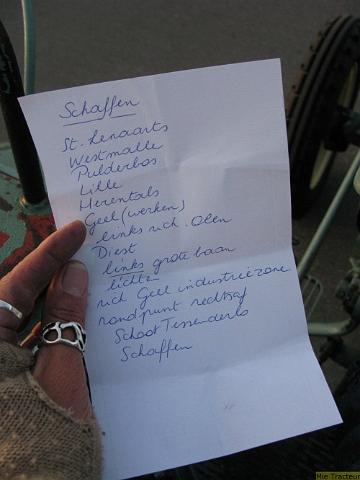 Schaffen
St. Lenaarts
Westmalle
Pulderbos
Lille
Herentals
Geel (werken)
links rich. Olen
Diest
links grote baan
lichte
rich Geel industriezone
rondpunt rechtsaf
Schoot Tessenderlo
Schaffen
Mie Tracteur